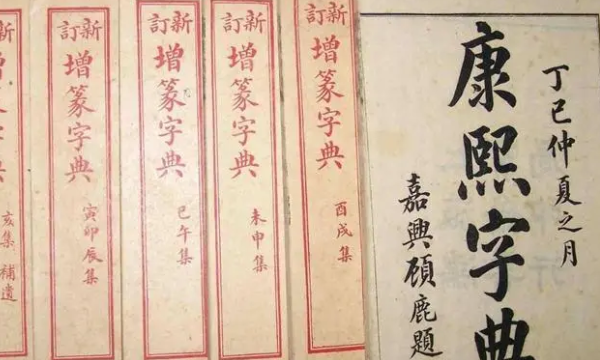 丁巳仲夏之月
康熙字典
嘉興顧鹿題
新訂
增篆字典
酉戌集
新訂
增篆字典
未申集
新訂
增篆字典
巳午集
新訂
增篆字典
寅卯辰集
字典
亥集 補遺